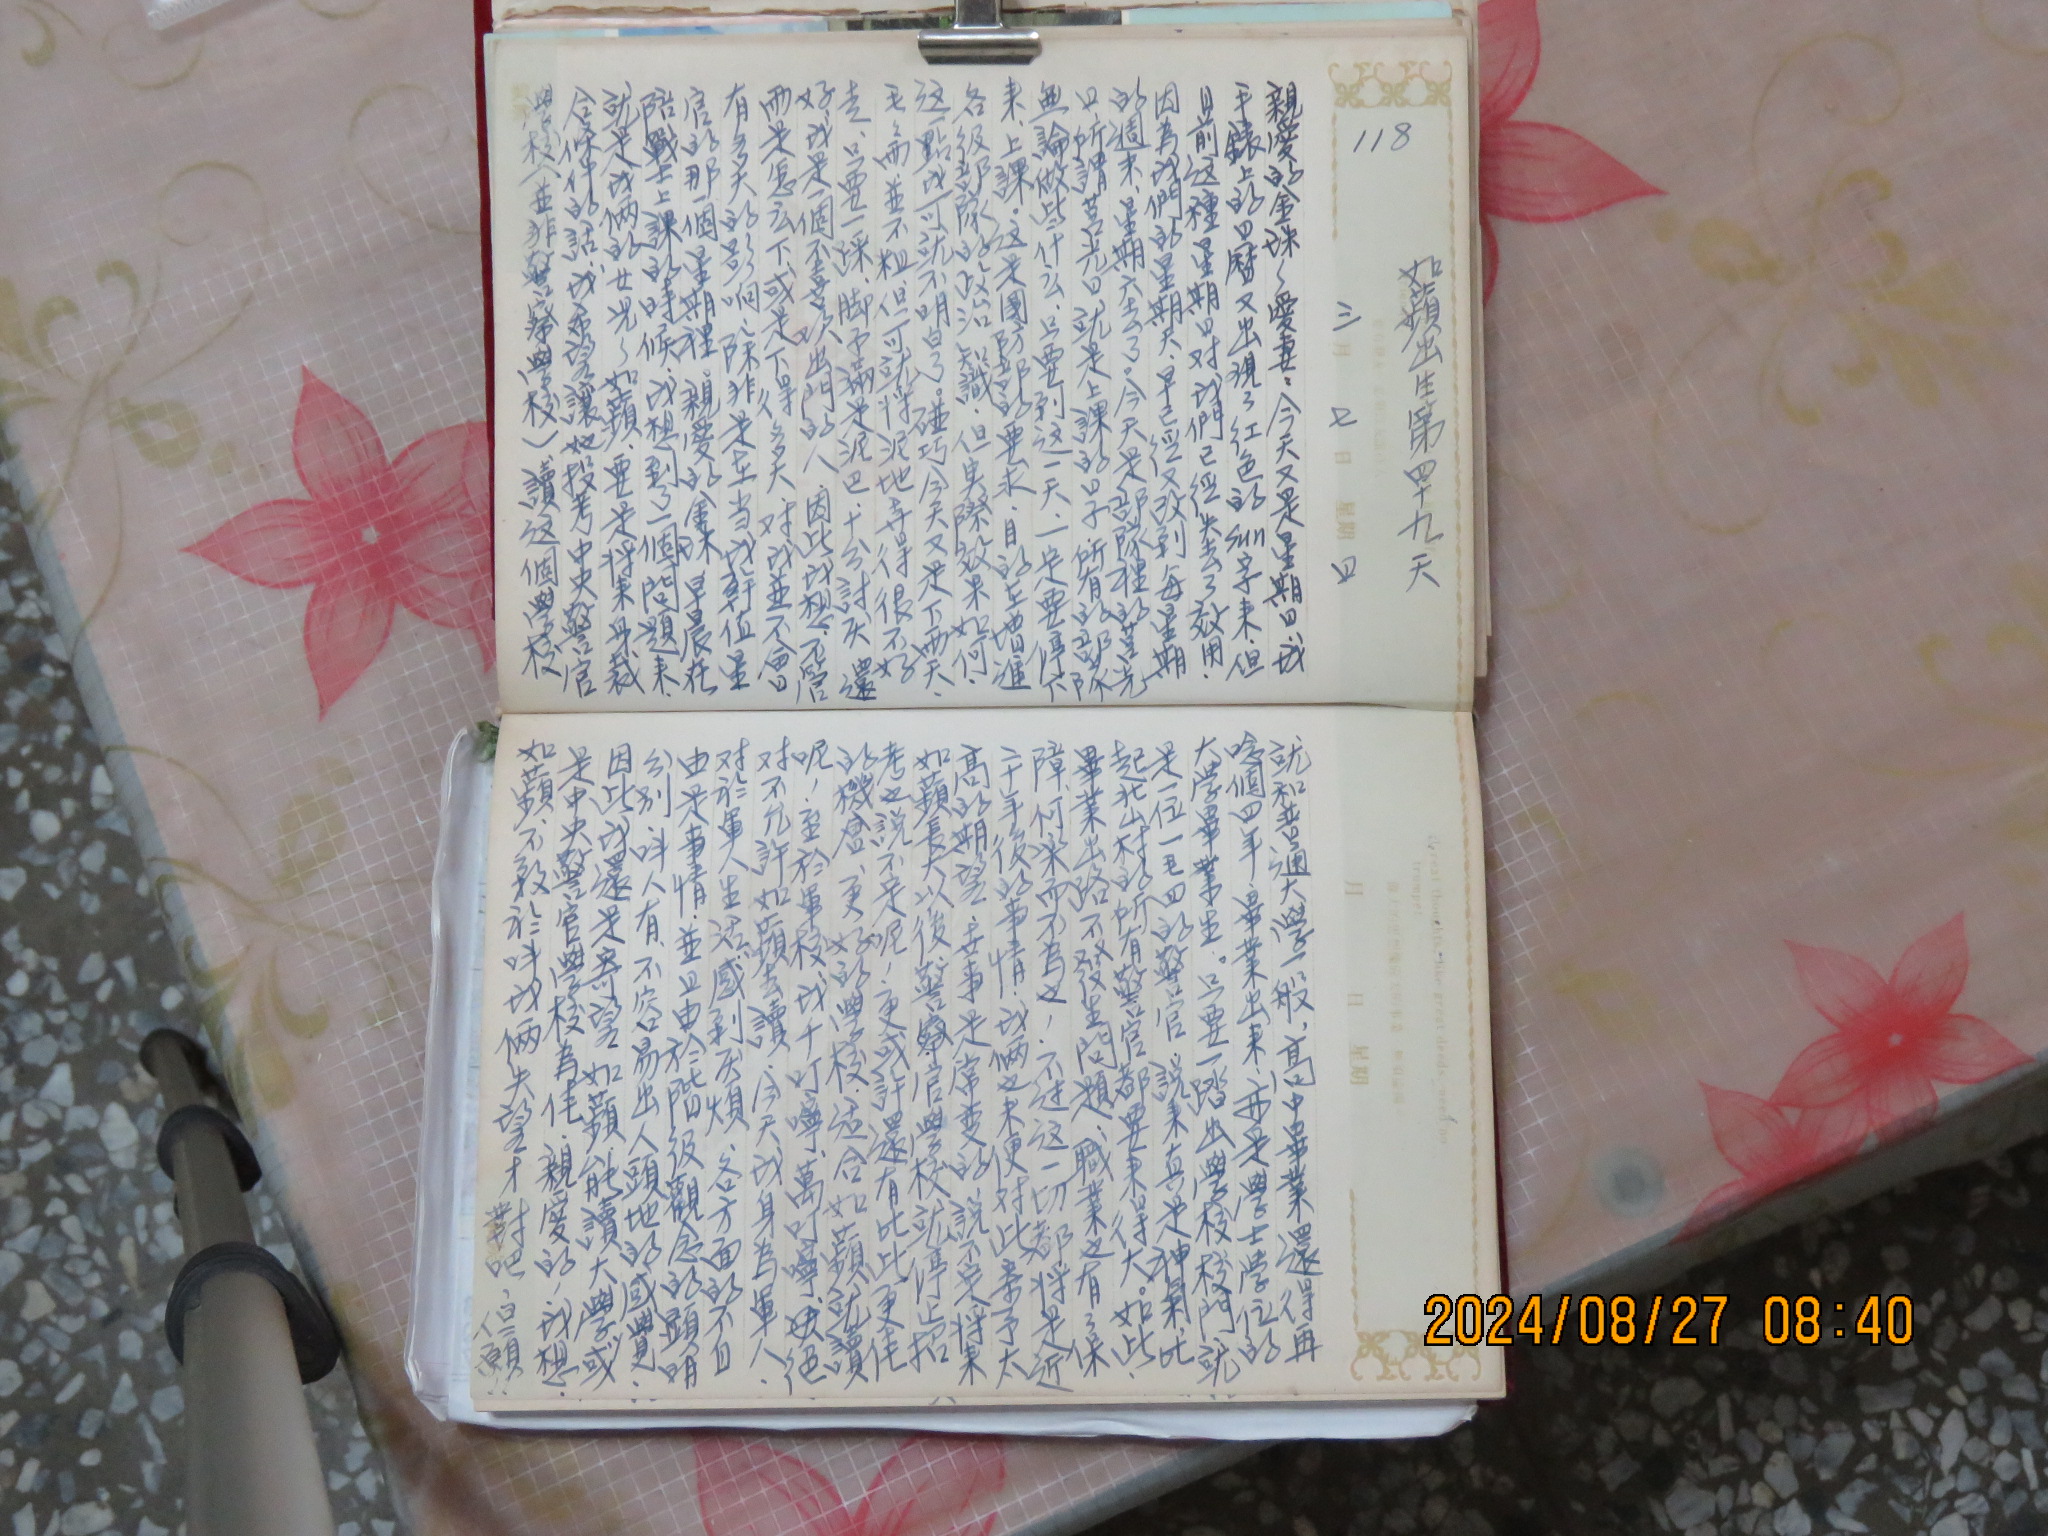 118
如蘋出生第四十九天
三月七日 星期四
親愛的金珠、愛妻：今天又是星期日，我
手錶上的日曆又出現了紅色的sun字来，但
目前这種星期日对我們已經失去了效用，
因為我們的星期天，早已經又改到每星期
的週末，星期六去了。今天是部隊裡的莒光
日，所謂莒光日，就是上課的日子，所有的部隊
無論做些什么，只要到这一天，一定要停下
来上課。这是國防部的要求，目的在增進
各級部隊的政治知識，但实際效果如何，
这一點我可就不明白了。碰巧今天又是下雨天，
毛雨並不粗，但可就将泥地弄得很不好
走，只要一踩，脚子滿是泥巴，十分討厌，還
好，我是一個不喜欢出門的人，因此我想，不管
雨是怎么下，或是下得多大，对我並不會
有多大的影响，除非是在当我輪值星
官的那一個星期裡。親愛的金珠，早晨在
陪戰士上課的時候，我想到了一個问題来，
就是我俩的女兒、如蘋，要是将来身裁
合條件的話，我希望讓她投考中央警官
學校（並非警察學校）讀这個學校
就和普通大學一般，高中畢業還得再
唸個四年，畢業出来，亦是學士學位的
大学畢業生。只要一踏出學校校門就
是一位一毛四的警官，說来真是神氣，比
起北山村的所有警官都要来得大。如此，
畢業出路不發生問題，職業也有了保
障，何樂而不為也！不过这一切都将是近
二十年後的事情，我俩也未便对此寄予太
高的期望，世事是常变的，說不定将来
如蘋長大以後，警察官學校就停止招
考也說不定呢！更或許還有比此更佳
的機會、更好的學校，适合如蘋就讀
呢！至於軍校，我千叮嚀，萬叮嚀，
对不允許如蘋去讀，今天我身為軍人，
对於軍人生活感到厌煩，各方面的不自
由是事情，並且由於階級觀念的顕明
分別，叫人有不容易出人頭地的感覺，
因此我還是希望如蘋能讀大學或
是中央警官學校為佳，親愛的，我想
如蘋不致於叫我俩失望才對吧，但願